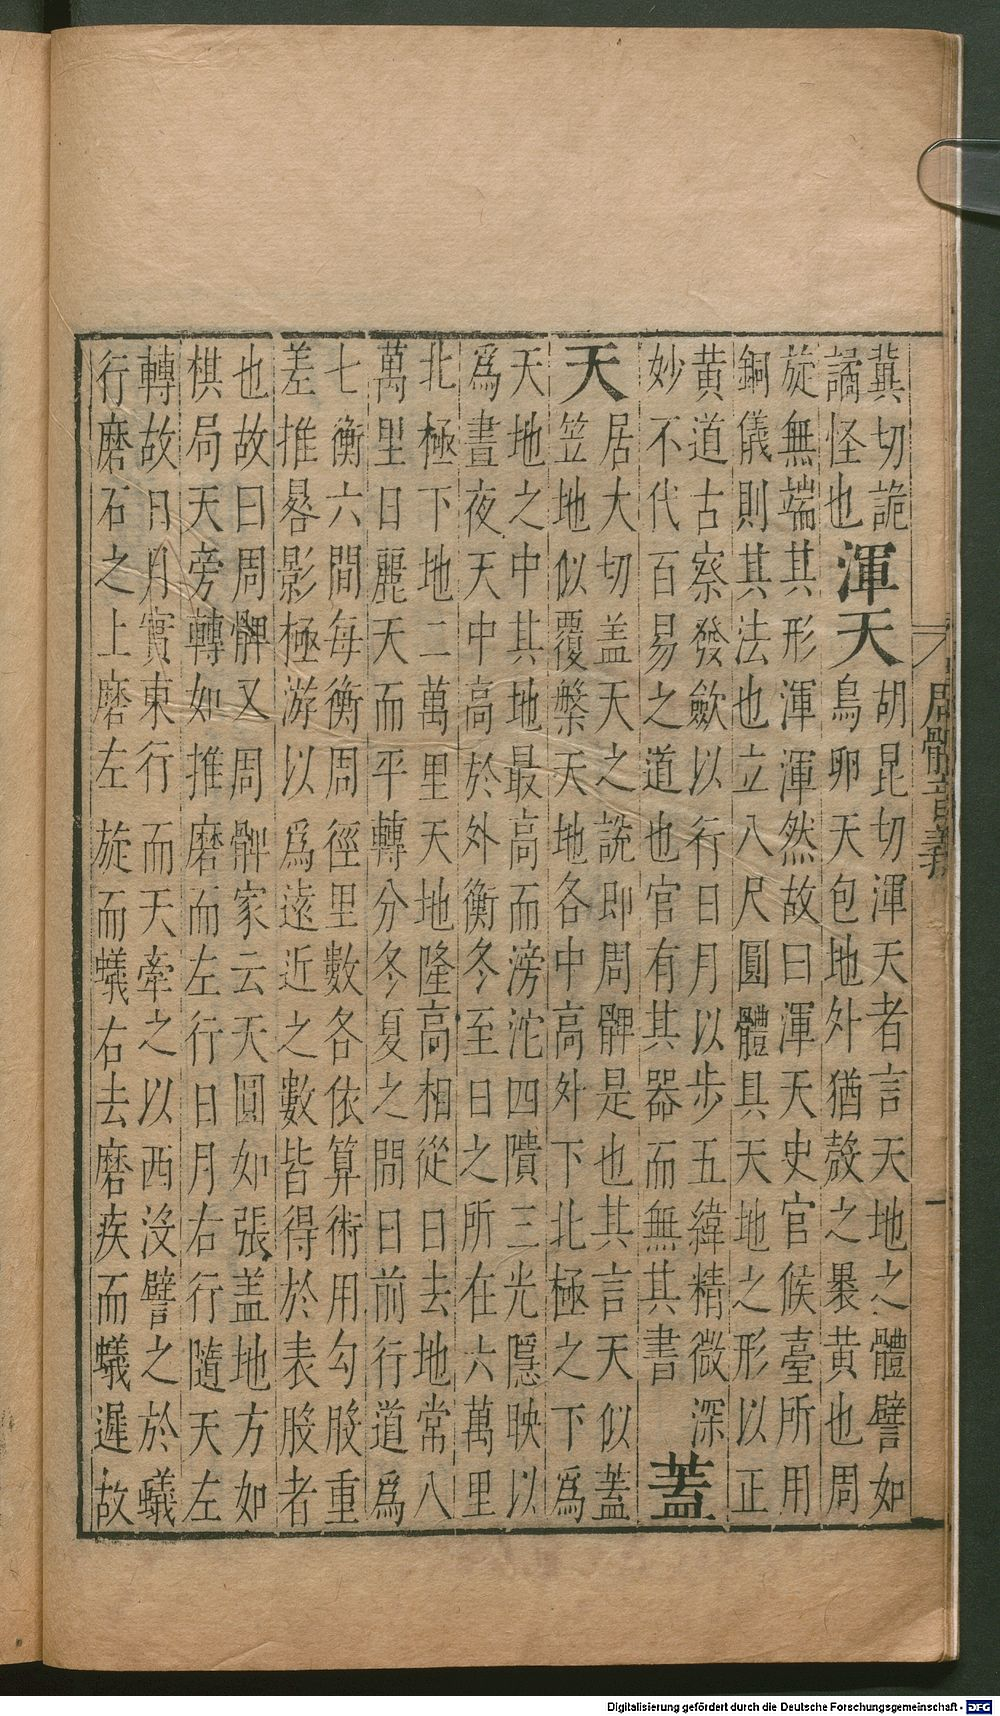 冀切詭
譎怪也
渾天
胡昆切渾天者言天地之體譬如
鳥卵天包地外猶殼之褁黄也周
旋無端其形渾渾然故曰渾天史官候臺所用
銅儀則其法也立八尺圓體具天地之形以正
黄道古察發斂以行日月以步五緯精微深
妙不代百易之道也官有其器而無其書
蓋
天
居大切盖天之說即周髀是也其言天似蓋
笠地似覆槃天地各中高外下北極之下爲
天地之中其地最高而滂沱四隤三光隱映以
爲晝夜天中高於外衡冬至日之所在六萬里
北極下地二萬里天地隆高相從日去地常八
萬里日麗天而平轉分冬夏之間日前行道爲
七衡六間每衡周徑里數各依算術用勾股重
差推晷影極游以爲遠近之數皆得於表股者
也故曰周髀又周髀家云天圓如張盖地方如
棋局天旁轉如推磨而左行日月右行隨天左
轉故日月實東行而天牽之以西沒譬之於蟻
行磨石之上磨左旋而蟻右去磨疾而蟻遲故
周髀音義
一
Digitalisierung gefördert durch die Deutsche Forschungsgemeinschaft - DFG